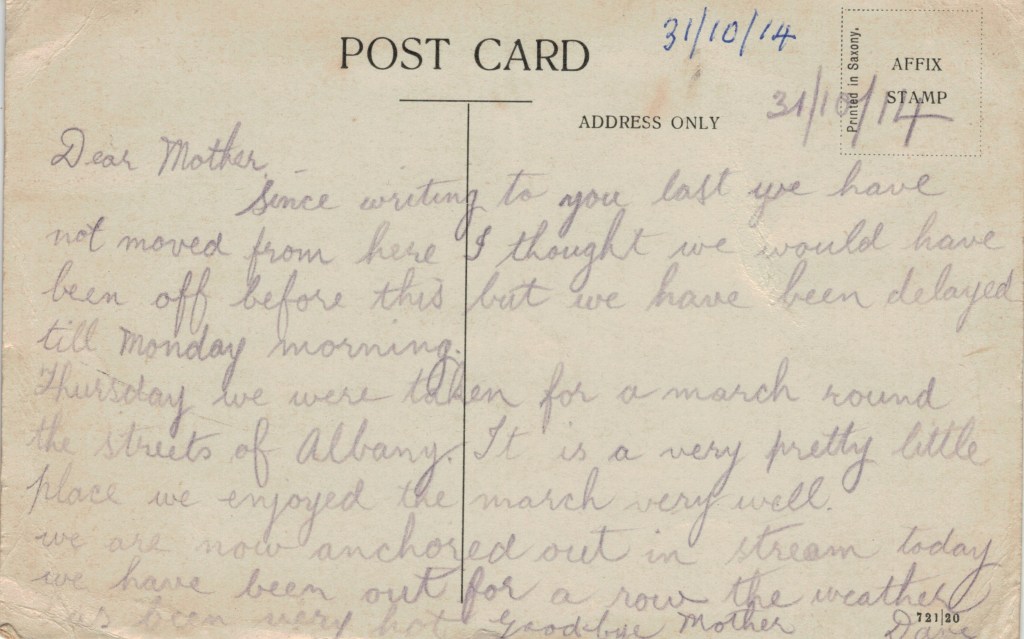 POST CARD
31/10/14
Printed in Saxony.
AFFIX
STAMP
ADDRESS ONLY
31/10/14
Dear Mother
Since writing to you last we have
not moved from here I thought we would have
been off before this but we have been delayed
till Monday morning.
Thursday we were taken for a march round
the streets of Albany. It is a very pretty little
place we enjoyed the march very well.
we are now anchored out in stream today
we have been out for a row the weather
has been very hot Goodbye Mother Dave
721/20